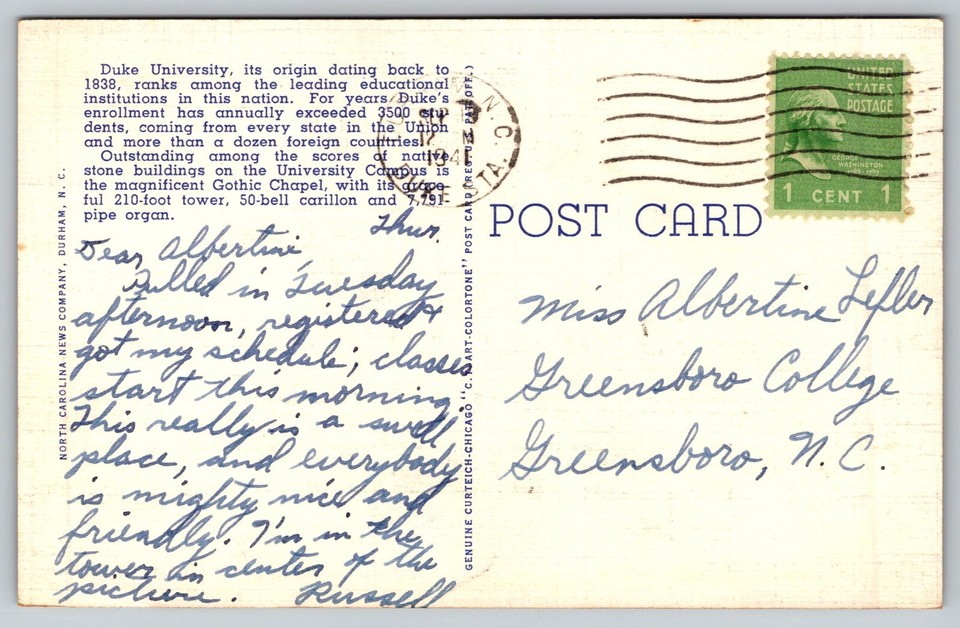 Duke University, its origin dating back to
1838, ranks among the leading educational
institutions in this nation. For years Duke's
enrollment has annually exceeded 3500 stu-
dents, coming from every state in the Union
and more than a dozen foreign countries.
Outstanding among the scores of native
stone buildings on the University Campus is
the magnificent Gothic Chapel, with its grace-
ful 210-foot tower, 50-bell carillon and 7,791-
pipe organ.
NORTH CAROLINA NEWS COMPANY, DURHAM, N. C.
Thur.
Dear Albertine,
Pulled in Tuesday
afternoon, registered &
got my schedule; classes
start this morning.
This really is a swell
place, and everybody
is mighty nice and
friendly. I'm in the
tower in center of the
picture. Russell
GENUINE CURTEICH-CHICAGO "C. T. ART-COLORTONE" POST CARD (REG. U.S. PAT. OFF.)
N. C.
SEP
12
1941
DUKE STA.
UNITED
STATES
POSTAGE
GEORGE
WASHINGTON
1 CENT 1
POST CARD
Miss Albertine Lefler
Greensboro College
Greensboro, N. C.